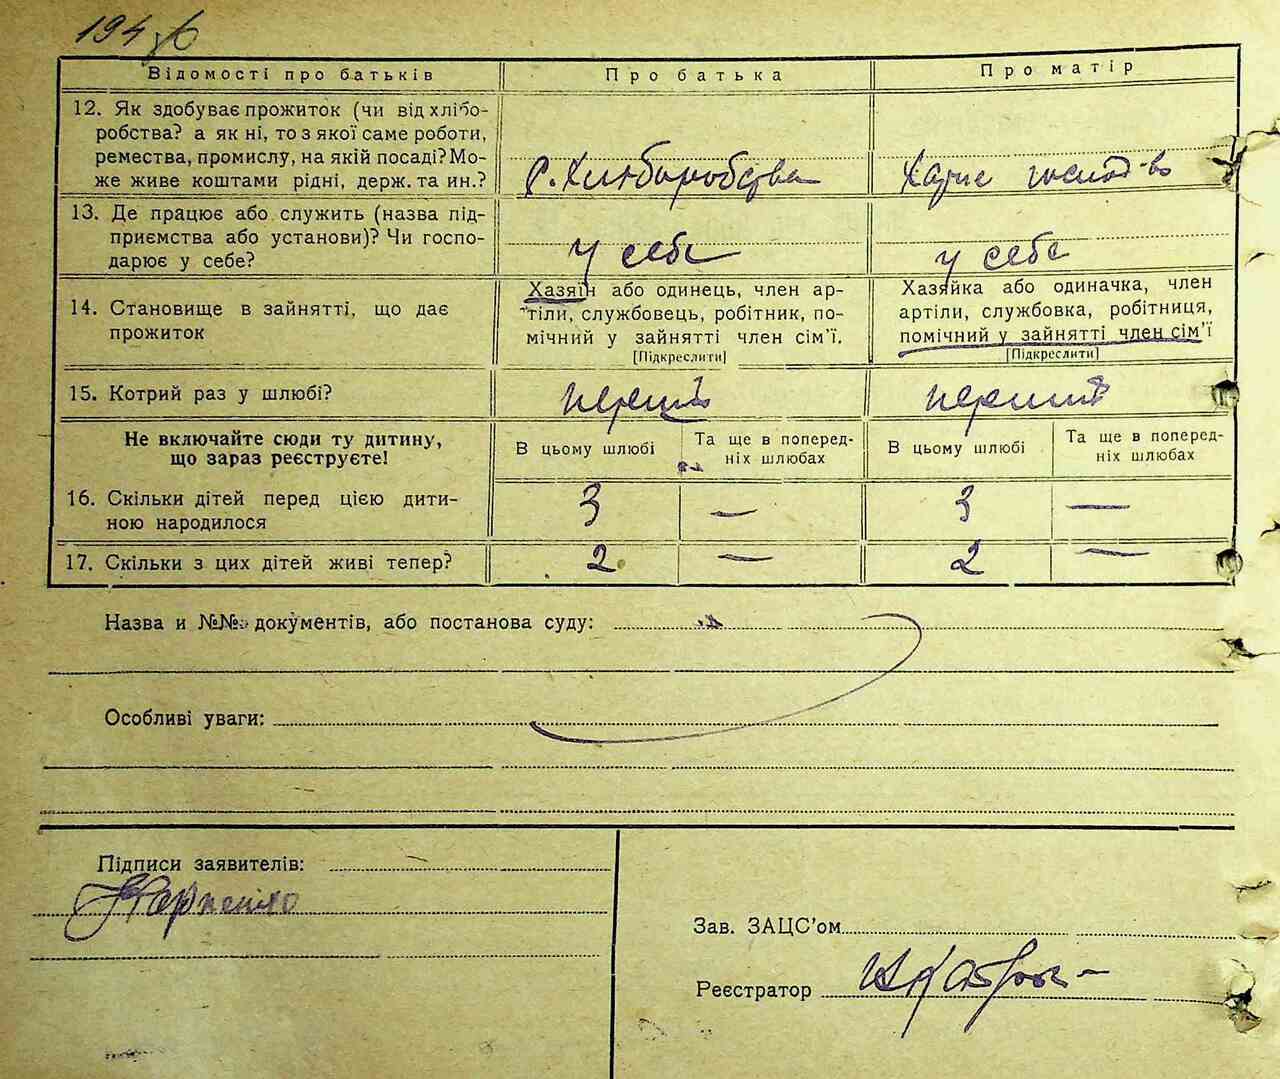 194
Відомості про батьків
Про батька
Про матір
12. Як здобуває прожиток (чи від хлібо-
робства? а як ні, то з якої саме роботи,
ремества, промислу, на якій посаді? Мо-
же живе коштами рідні, держ. та ин.?
с. Хлібороб­ства
Хатнє господ-во
13. Де працює або служить (назва під-
приємства або установи)? Чи госпо-
дарює у себе?
у себе
у себе
14. Становище в зайнятті, що дає
прожиток
Хазяїн або одинець, член ар-
тіли, службовець, робітник, по-
мічний у зайнятті член сім'ї.
[Підкреслити]
Хазяйка або одиначка, член
артіли, службовка, робітниця,
помічний у зайнятті член сім'ї
[Підкреслити]
15. Котрий раз у шлюбі?
перший
перший
Не включайте сюди ту дитину,
що зараз реєструєте!
В цьому шлюбі
Та ще в поперед-
ніх шлюбах
В цьому шлюбі
Та ще в поперед-
ніх шлюбах
16. Скільки дітей перед цією дити-
ною народилося
3 — 3 —
17. Скільки з цих дітей живі тепер?
2 — 2 —
Назва и №№ документів, або постанова суду:
Особливі уваги:
Підписи заявителів:
Карпенко
Зав. ЗАЦС'ом
Реєстратор